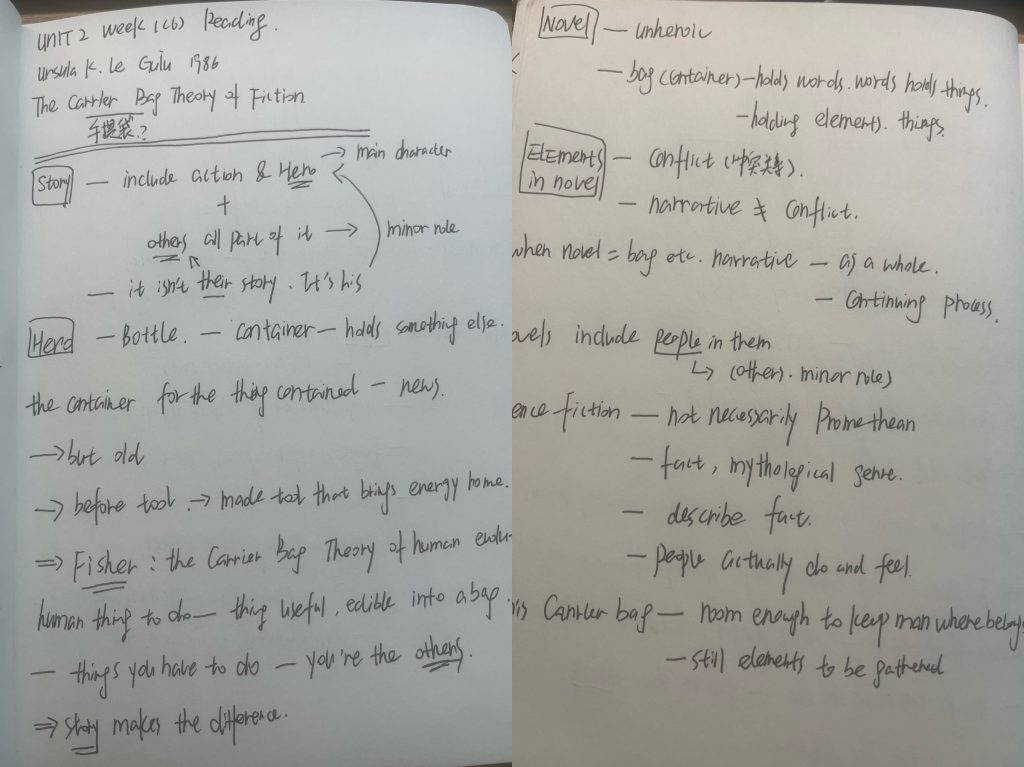 UNIT 2 week 1(6) Reading.
Ursula K. Le Guin 1986
The Carrier Bag Theory of Fiction
手提袋?
Story — include action & Hero → main character
+
others all part of it → minor role
— it isn't their story. It's his
Hero — Bottle. — container — holds something else.
the container for the thing contained — news.
→ but old
→ before tool. → made tool that brings energy home.
⇒ Fisher : the Carrier Bag Theory of human evolu-
human thing to do — thing useful, edible into a bag.
— things you have to do — you're the others.
⇒ story makes the difference.
Novel — unheroic
— bag (container) — holds words. words holds things.
— holding elements. things.
Elements in novel — Conflict (冲突类).
— narrative ≠ conflict.
when novel = bag etc. narrative — as a whole.
— Continuing process.
ovels include people in them
↳ (others. minor role)
ence Fiction — not necessarily Promethean
— fact, mythological genre.
— describe fact.
— people actually do and feel.
is Carrier bag — room enough to keep man where belong
— still elements to be gathered